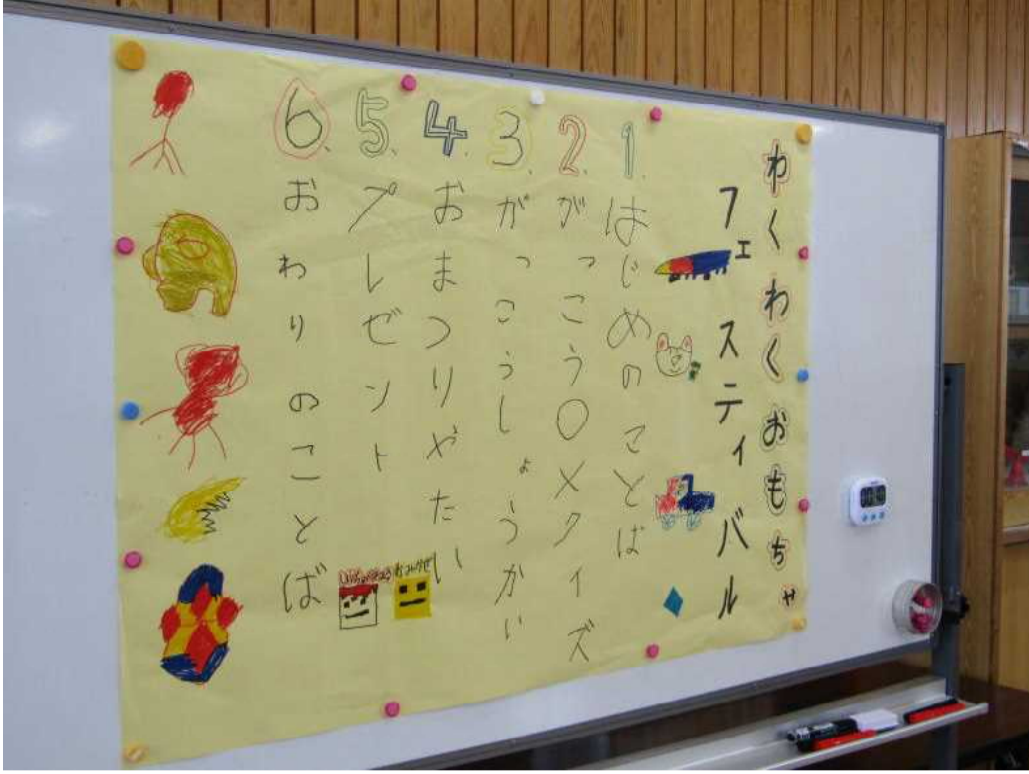 わくわくおもちゃ
フェスティバル
1.はじめのことば
2.がっこう〇×クイズ
3.がっこうしょうかい
4.おまつりやたい
5.プレゼント
6.おわりのことば